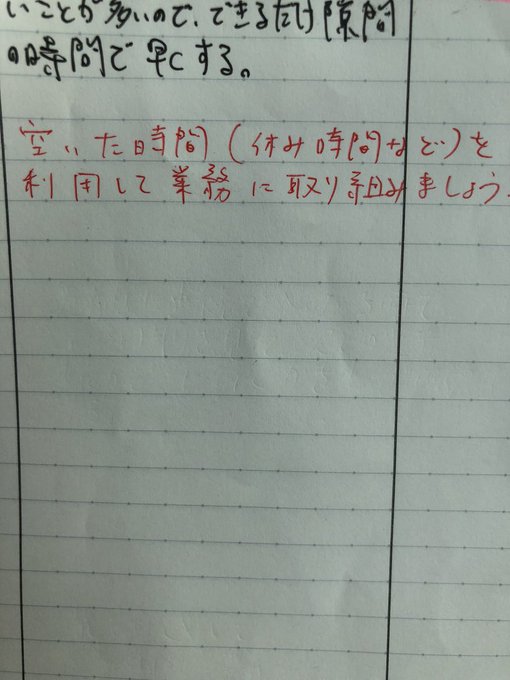 いことが多いので、できるだけ隙間
時間で早くする。
空いた時間(休み時間など)を
利用して業務に取り組みましょう。